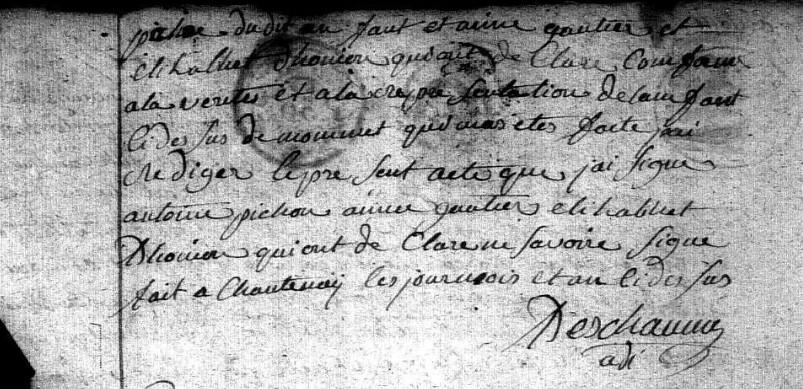 pichon dudit an fant et anne gautier et
elihabhet Dhonion qui ont de Clare Com forme
a la verite et a la re pre sentation de lan fant
Ci des sus de nommet qui mas etes faite jai
re diger le pre sent acte que jai signe
antoine pichon anne gautier elihabhet
Dhonion qui ont de Clare ne savoire signe
fait a Chantenay les jour mois et an Ci des sus
Deschamns
adi